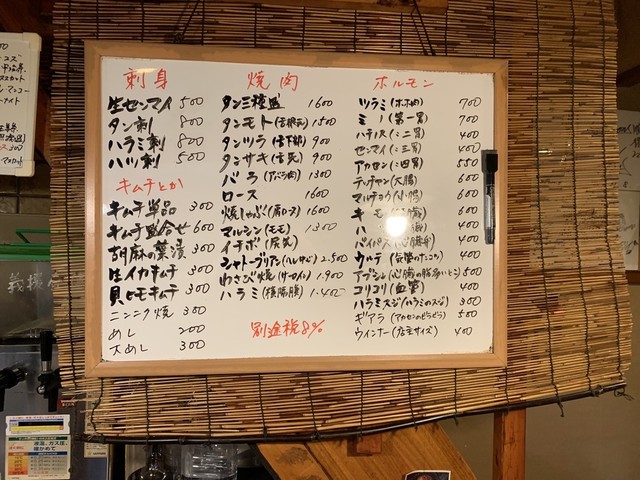 刺身
生センマイ 500
タン刺 800
ハラミ刺 800
ハツ刺 500
キムチとか
キムチ単品 300
キムチ盛合せ 600
胡麻の葉漬 300
生イカキムチ 300
貝ヒモキムチ 300
ニンニク焼 300
めし 200
大めし 300
焼肉
タン三種盛 1600
タンモト(舌根元) 1500
タンツラ(舌下部) 900
タンサキ(舌先) 900
バラ(アバラ肉) 1300
ロース 1600
焼しゃぶ(肩ロース) 1600
マルシン(モモ) 1300
イチボ(尻先)
シャトーブリアン(ヘレ中心) 2.500
わさび焼(サーロイン) 1.900
ハラミ(横隔膜) 1.400
別途税8%
ホルモン
ツラミ(ホホ肉) 700
ミノ(第一胃) 700
ハチノス(二胃) 400
センマイ(三胃) 400
アカセン(四胃) 550
テッチャン(大腸) 600
マルチョウ(小腸) 600
キモ 600
ハ 400
パイパス(心臓弁) 400
ウルテ(気管のナンコツ) 400
アブシン(心臓の脂多いとこ) 500
コリコリ(血管) 400
ハラミスジ(ハラミのスジ) 300
ギアラ(アカセンのびらびら) 500
ウィンナー(店主サイズ) 400
義援